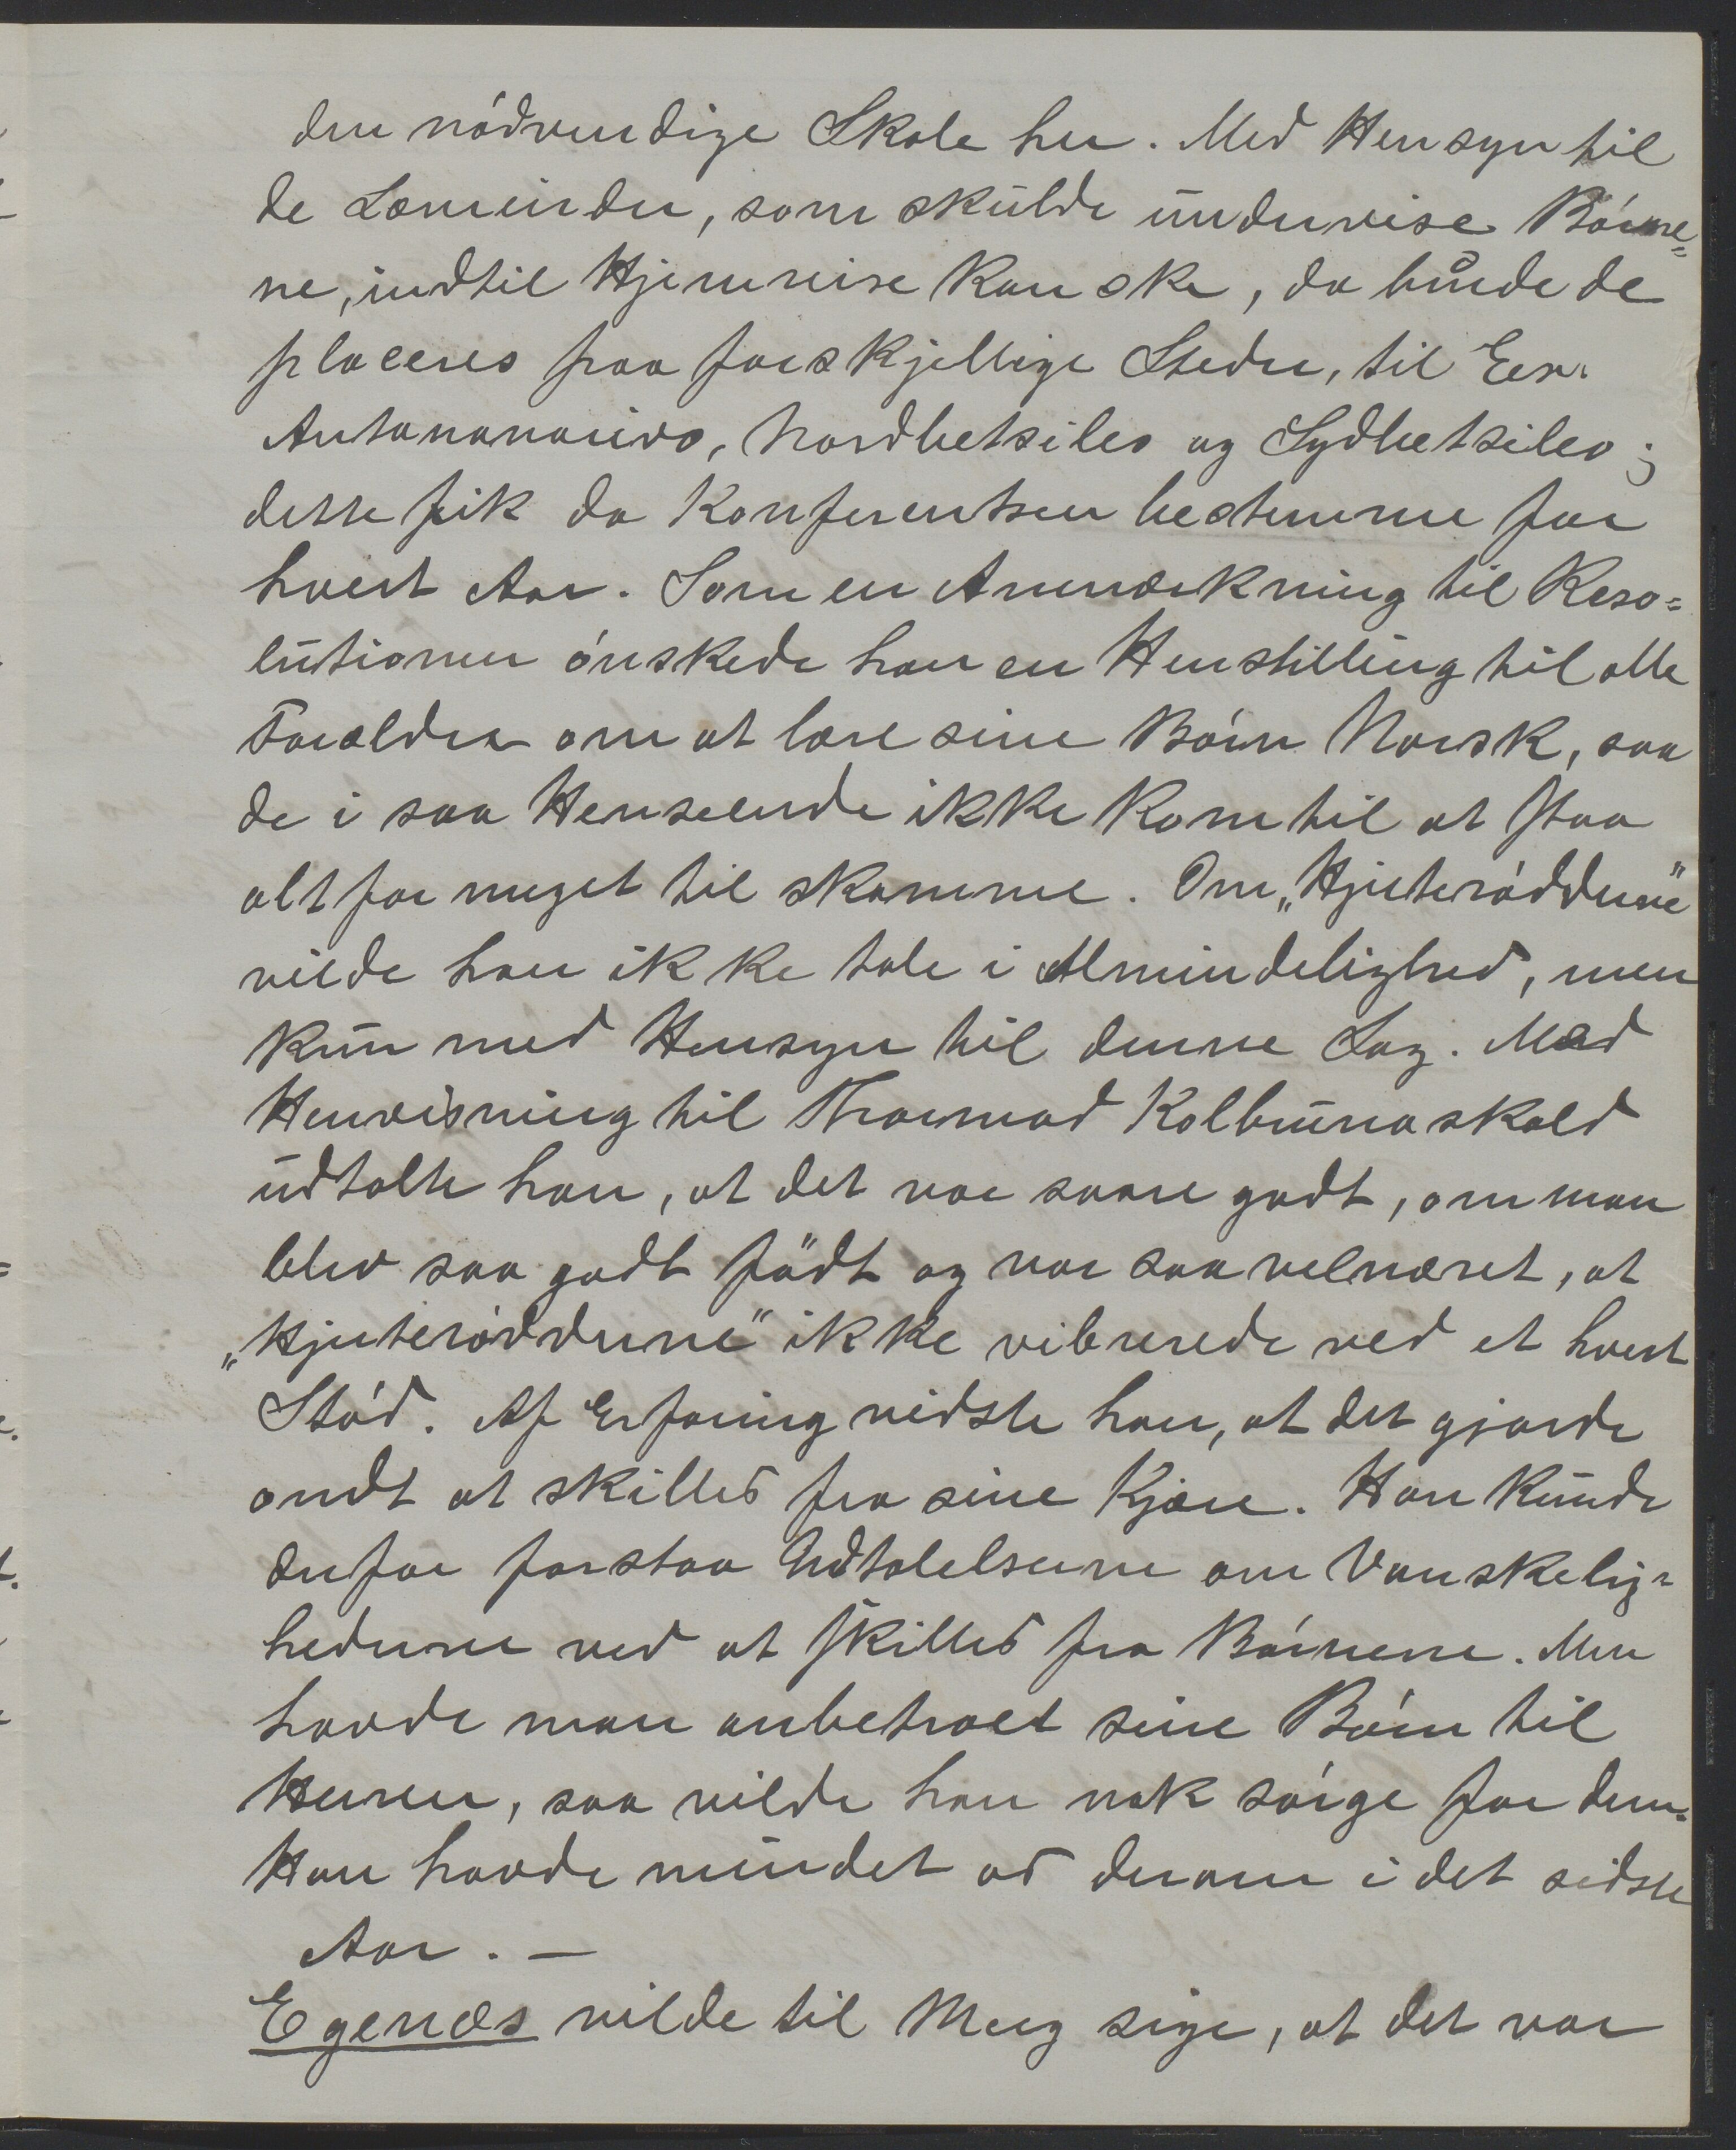 den nödvendige Skole her. Med Hensyn til
de Lærerinder, som skulde undervise Börne=
ne, indtil Hjemreise kan ske, da burde de
placeres paa forskjellige Steder, til Ex.
Antananarivo, Nordbetsileo og Sydbetsileo;
dette fik da Konferentsen bestemme for
hvert Aar. Som en Anmærkning til Reso=
lutionen önskede han en Henstilling til alle
Forældre om at lære sine Börn Norsk, saa
de i saa Henseende ikke kom til at staa
altfor meget til skamme. Om „Hjerterödderne"
vilde han ikke tale i Almindelighed, men
kun med Hensyn til denne Sag. Med
Henvisning til Thormod Kolbrunaskald
udtalte han, at det var saare godt, om man
blev saa godt födt og var saa velnæret, at
„Hjerterödderne" ikke vibrerede ved et hvert
Stöd. Af Erfaring vidste han, at det gjorde
ondt at skilles fra sine Kjære. Han kunde
derfor forstaa Udtalelserne om Vanskelig=
hederne ved at skilles fra Börnene. Men
havde man anbetroet sine Börn til
Herren, saa vilde han nok sörge for dem.
Han havde mindet os derom i det sidste
Aar. —
Egenæs vilde til Meeg sige, at det var